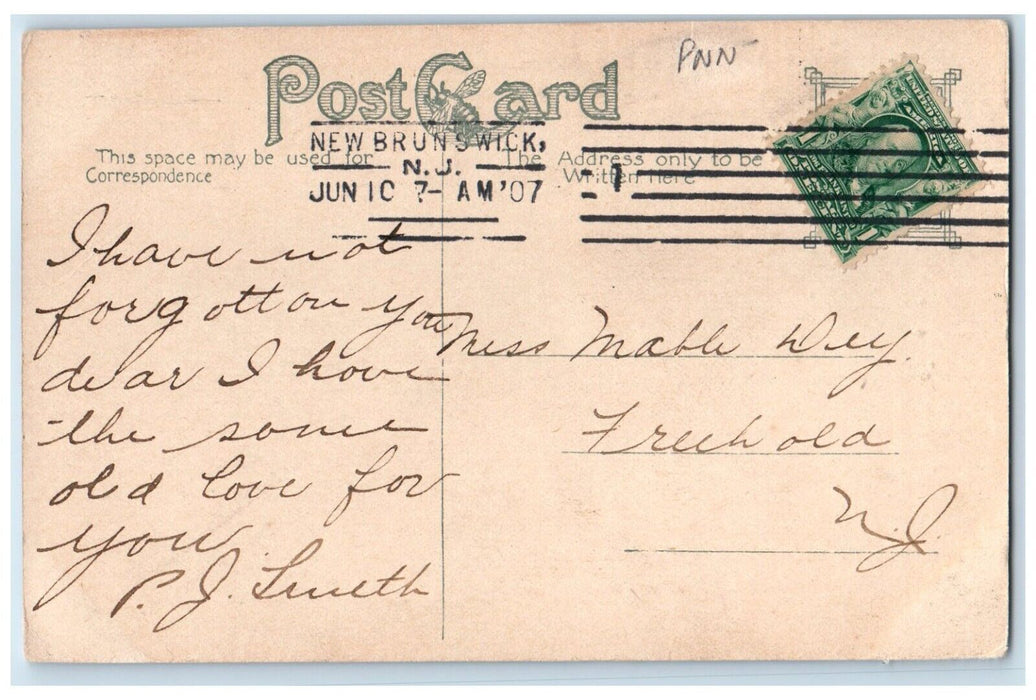 PNN
Post Card
NEW BRUNSWICK,
N.J.
JUN 10 7- AM '07
1
This space may be used for
Correspondence
The Address only to be
Written Here
I have not
forgotton you
dear I have
the same
old love for
you
P. J. Smith
Miss Mable Dey.
Freehold
N.J.